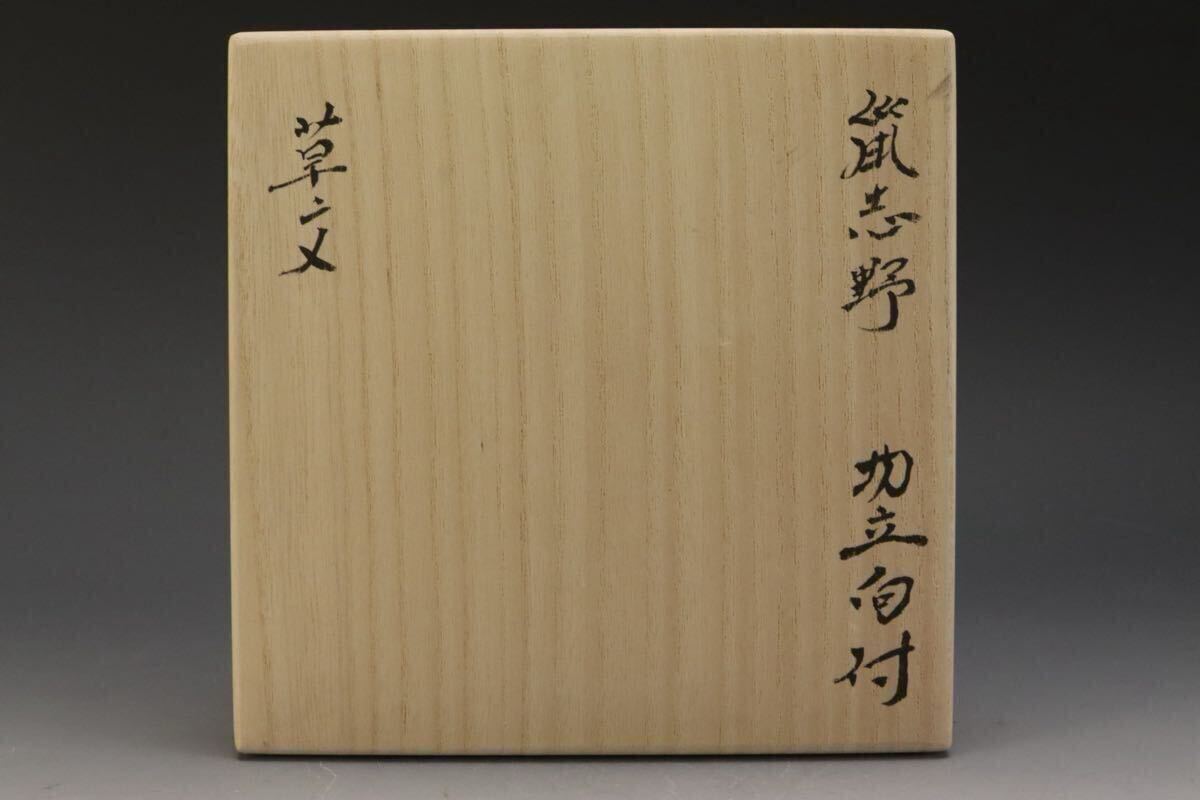 鼠志野 切立向付
草文